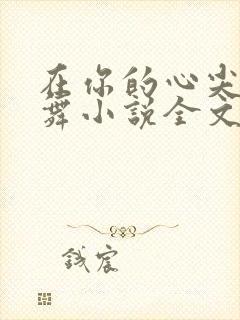 在你的心尖
舞小说全文
钱宸